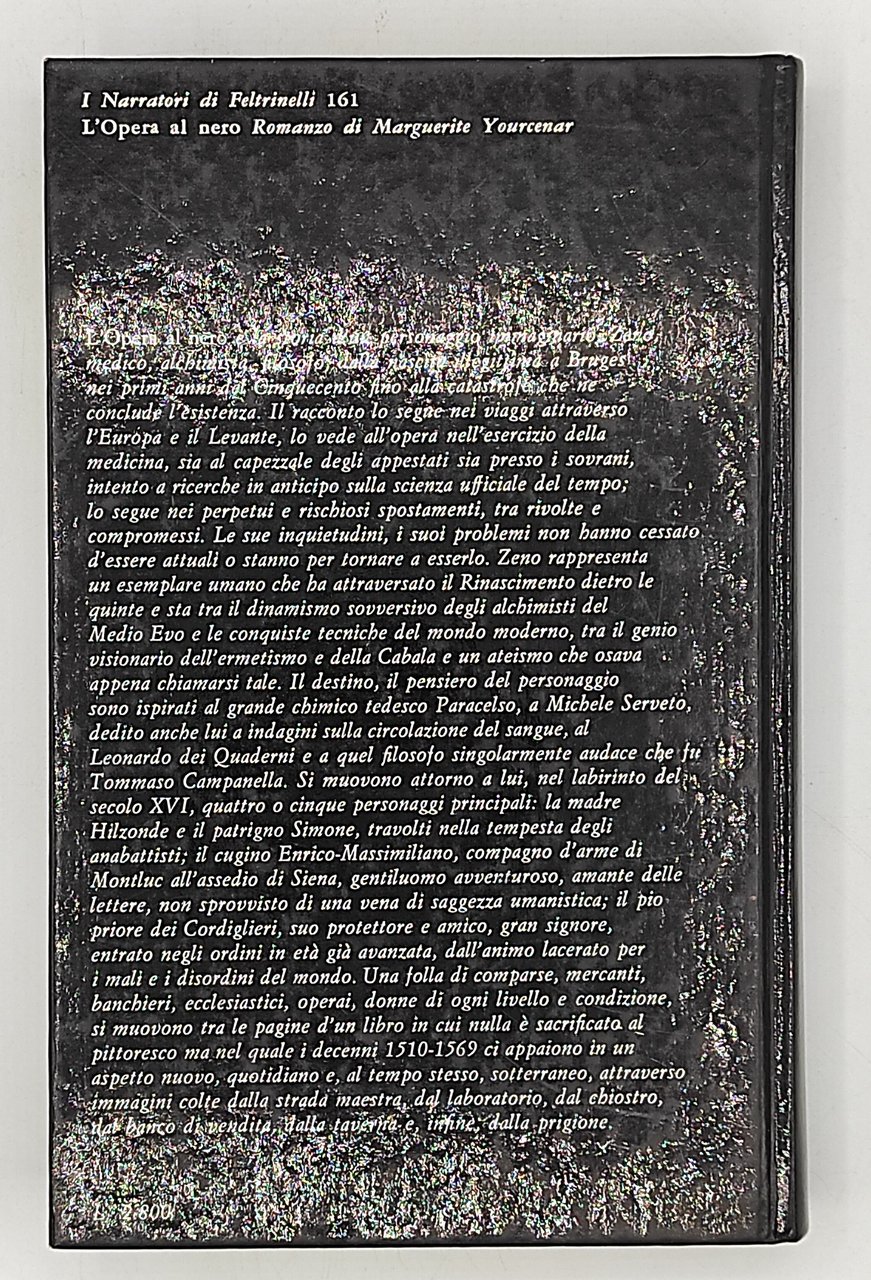 I Narratori di Feltrinelli 161
L'Opera al nero Romanzo di Marguerite Yourcenar
L'Opera al nero è la storia d'un personaggio immaginario, Zeno,
medico, alchimista, filosofo, dalla nascita illegittima a Bruges
nei primi anni del Cinquecento fino alla catastrofe che ne
conclude l'esistenza. Il racconto lo segue nei viaggi attraverso
l'Europa e il Levante, lo vede all'opera nell'esercizio della
medicina, sia al capezzale degli appestati sia presso i sovrani,
intento a ricerche in anticipo sulla scienza ufficiale del tempo;
lo segue nei perpetui e rischiosi spostamenti, tra rivolte e
compromessi. Le sue inquietudini, i suoi problemi non hanno cessato
d'essere attuali o stanno per tornare a esserlo. Zeno rappresenta
un esemplare umano che ha attraversato il Rinascimento dietro le
quinte e sta tra il dinamismo sovversivo degli alchimisti del
Medio Evo e le conquiste tecniche del mondo moderno, tra il genio
visionario dell'ermetismo e della Cabala e un ateismo che osava
appena chiamarsi tale. Il destino, il pensiero del personaggio
sono ispirati al grande chimico tedesco Paracelso, a Michele Serveto,
dedito anche lui a indagini sulla circolazione del sangue, al
Leonardo dei Quaderni e a quel filosofo singolarmente audace che fu
Tommaso Campanella. Si muovono attorno a lui, nel labirinto del
secolo XVI, quattro o cinque personaggi principali: la madre
Hilzonde e il patrigno Simone, travolti nella tempesta degli
anabattisti; il cugino Enrico-Massimiliano, compagno d'arme di
Montluc all'assedio di Siena, gentiluomo avventuroso, amante delle
lettere, non sprovvisto di una vena di saggezza umanistica; il pio
priore dei Cordiglieri, suo protettore e amico, gran signore,
entrato negli ordini in età già avanzata, dall'animo lacerato per
i mali e i disordini del mondo. Una folla di comparse, mercanti,
banchieri, ecclesiastici, operai, donne di ogni livello e condizione,
si muovono tra le pagine d'un libro in cui nulla è sacrificato al
pittoresco ma nel quale i decenni 1510-1569 ci appaiono in un
aspetto nuovo, quotidiano e, al tempo stesso, sotterraneo, attraverso
immagini colte dalla strada maestra, dal laboratorio, dal chiostro,
dal banco di vendita, dalla taverna e, infine, dalla prigione.
L. 2.800